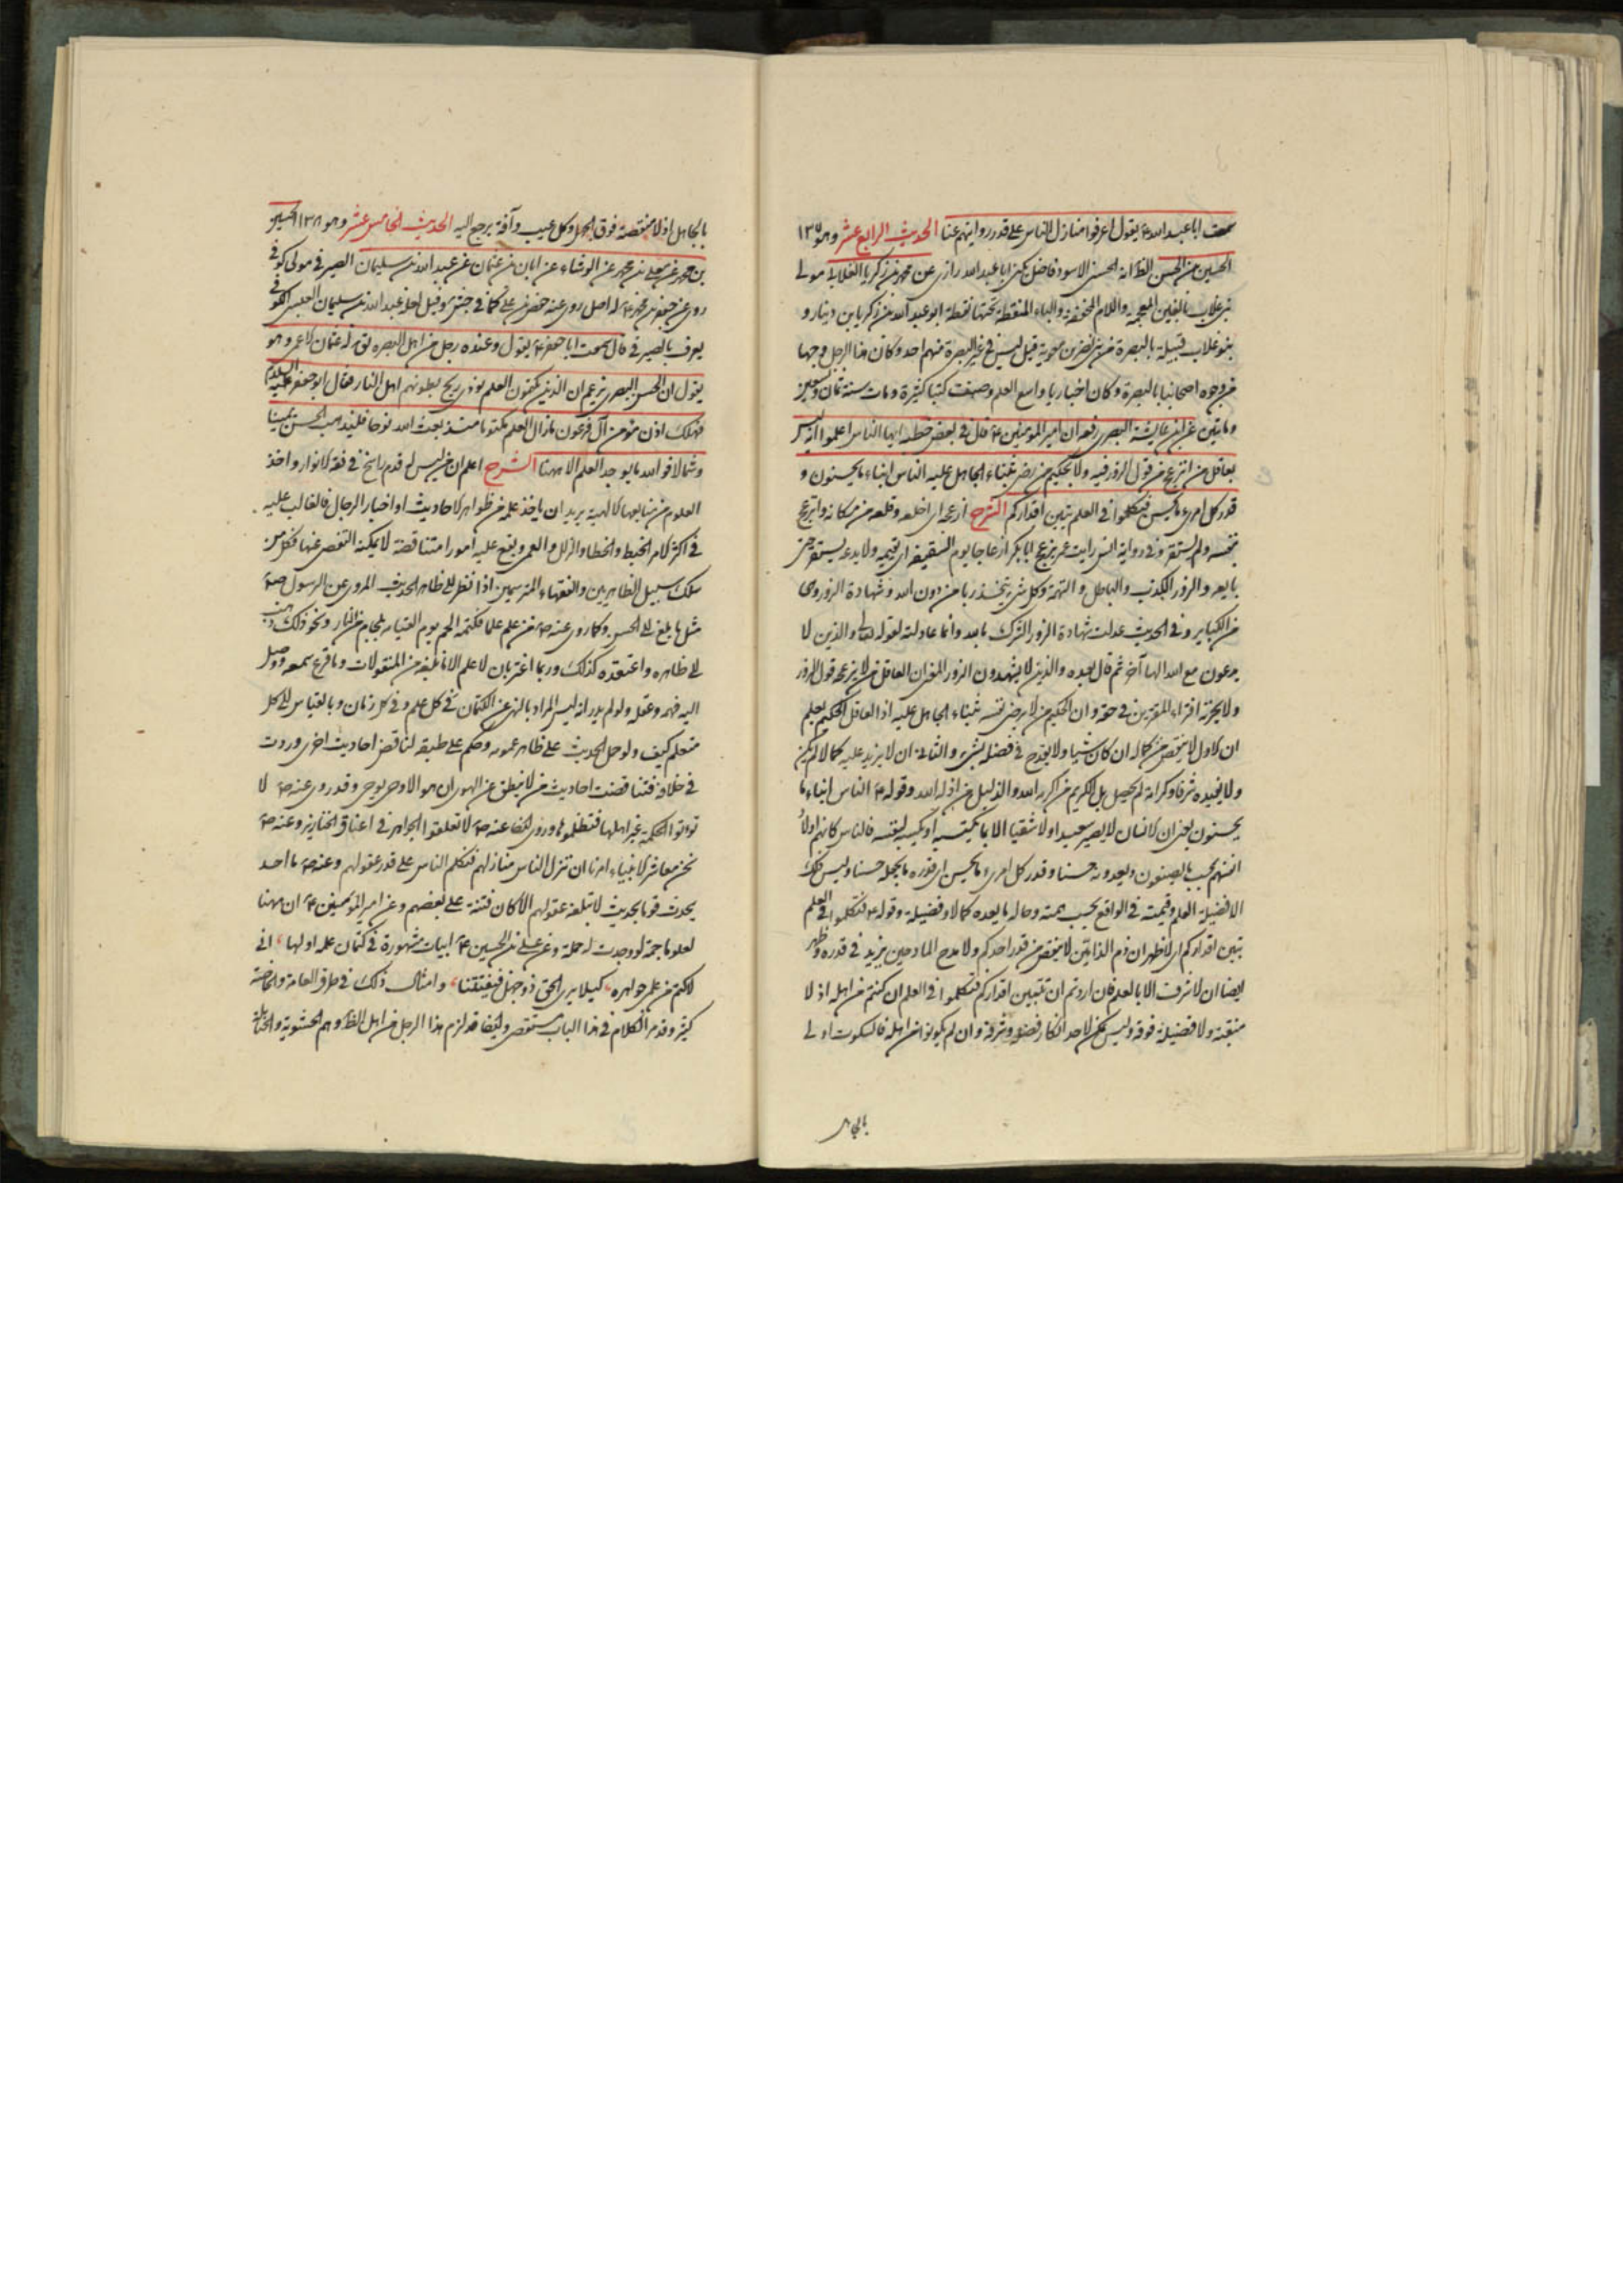 سمعت ابا عبد الله ع يقول اعرفوا منازل الناس على قدر روايتهم عنا الحديث الرابع عشر وهو ١٣٥
الحسين بن الحسن الظ انه الحسنى الاسود فاضل يكنى ابا عبد الله رازى عن محمد بن زكريا الغلابى مولى
بنى غلاب بالغين المعجمة واللام المخففة والباء المنقطة تحتها نقطة ابو عبد الله بن زكريا بن دينار و
بنو غلاب قبيلة بالبصرة من بنى نضر بن معوية قيل ليس فى غير البصرة منهم احد وكان هذا الرجل وجها
من وجوه اصحابنا بالبصرة وكان اخباريا واسع العلم وصنف كتبا كثيرة ومات سنة ثمان وتسعين
ومايتين عن ابن عايشة البصرى رفعه ان امير المؤمنين ع قال فى بعض خطبه ايها الناس اعلموا انه ليس
بعاقل من انزعج من قول الزور فيه ولا بحكيم من رضى بثناء الجاهل عليه الناس ابناء ما يحسنون و
قدر كل امرء ما يحسن فتكلموا فى العلم تبين اقداركم الشرح ازعجه اى اخلعه وقلعه من مكانه وانزعج
بنفسه ولم يستقر وفى رواية انس رايت عمر يزعج ابا بكر ازعاجا يوم السقيفة اى يقيمه ولا يدعه يستقر حتى
بايعه والزور الكذب والباطل والتهمة وكل شىء يتخذ ربا من دون الله وشهادة الزور وهى
من الكباير وفى الحديث عدلت شهادة الزور الشرك بالله وانما عادلته لقوله تعالى والذين لا
يدعون مع الله الها آخر ثم قال بعده والذين لا يشهدون الزور المغزى ان العاقل من لا يزعجه قول الزور
ولا يحزنه افتراء المفترين فى حقه وان الحكيم من لا يرضى نفسه بثناء الجاهل عليه اذ العاقل الحكيم يعلم
ان الاول لا ينقص من كماله ان كان شيئا ولا يقدح فى فضله بشىء والثانى ان لا يزيد عليه كمالا لم يكن
ولا يفيده شرفا وكرامة لم يحصل بل الكريم من اكرمه الله والذليل من اذله الله وقوله ع الناس ابناء ما
يحسنون يعنى ان الانسان لا يصير سعيدا ولا شقيا الا بما يكتسبه او يكسبه لنفسه فالناس كانهم اولاد
افهم بحسب ما يصنعون ويعدونه حسنا وقدر كل امرء ما يحسن اى قدره ما يجعله حسنا وليس ذلك
الا فضيلة العلم وقيمته فى الواقع بحسب همته وحاله ما يعده كمالا وفضيلة وقوله ع فتكلموا فى العلم
تبين اقداركم اى لا ظهر ان ذم الذامين لا ينقص من قدر احدكم ولا مدح المادحين يزيد فى قدره وظهر
ايضا ان لا شرف الا بالعلم فان اردتم ان تتبين اقداركم فتكلموا فى العلم ان كنتم من اهله اذ لا
منقبة ولا فضيلة فوقه وليس يمكن لاحد انكار فضله وشرفه وان لم يكونوا من اهله فالسكوت اولى
بالجاهل
بالجاهل اذ لا منقصة فوق الجهل وكل عيب وآفة يرجع اليه الحديث الخامس عشر وهو ١٣٨ الحسين
بن محمد عن معلى بن محمد عن الوشاء عن ابان بن عثمان عن عبد الله بن سليمان الصيرفى مولى كوفى
روى عن جعفر بن محمد ع له اصل روى عنه جعفر بن على كما فى جش وقيل لعله عبد الله بن سليمان العبسى الكوفى
يعرف بالصيرفى قال سمعت ابا جعفر ع يقول وعنده رجل من اهل البصرة يق له عثمان الاعمى وهو
يقول ان الحسن البصرى يزعم ان الذين يكتمون العلم يؤذى ريح بطونهم اهل النار فقال ابو جعفر عليه السلام
فهلك اذن مؤمن آل فرعون ما زال العلم مكتوما منذ بعث الله نوحا فليذهب الحسن يمينا
وشمالا فوالله ما يوجد العلم الا هيهنا الشرح اعلم ان من ليس له قدم راسخ فى فقه الانوار واخذ
العلوم من ينابيعها الالهية يريد ان ياخذ علمه من ظواهر الاحاديث او اخبار الرجال فالغالب عليه
فى اكثر كلامه الخبط والخطا والزلل والعمى ويقع عليه امورا متناقضة لا يمكنه التفصى عنها فكل من
سلك سبيل الظاهريين والفقهاء المترسمين اذا نظر الى ظاهر الحديث المروى عن الرسول ص
مثل ما بلغ الى الحسن وكما روى عنه ص من علم علما فكتمه الجم يوم القيامة بلجام من النار ونحو ذلك ذهب
الى ظاهره واعتقده كذلك وربما اغتر بان لا علم الا ما بلغه من المنقولات وما قرع سمعه ووصل
اليه فهمه وعقله ولو لم يدر انه ليس المراد بالنهى عن الكتمان فى كل علم وفى كل زمان وبالقياس الى كل
متعلم كيف ولو حمل الحديث على ظاهر عمومه وحكم على طبقه لناقض احاديث اخرى وردت
فى خلافه فتناقضت احاديث من لا ينطق عن الهوى ان هو الا وحى يوحى وقد روى عنه ص لا
تؤتوا الحكمة غير اهلها فتظلموها وروى ايضا عنه ص لا تعلقوا الجواهر فى اعناق الخنازير وعنه ص
نحن معاشر الانبياء امرنا ان ننزل الناس منازلهم فنكلم الناس على قدر عقولهم وعنه ص ما احد
يحدث قوما بحديث لا تبلغه عقولهم الا كان فتنة على بعضهم وعن امير المؤمنين ع ان ههنا
لعلوما جمة لو وجدت له حملة وعن على بن الحسين ع ابيات مشهورة فى كتمان علمه اولها انى
لاكتم من علمى جواهره كيلا يرى الحق ذو جهل فيفتتنا وامثال ذلك فى طرق العامة والخاصة
كثيرة وقد مر الكلام فى هذا الباب مستقصى وايضا قد لزم هذا الرجل من اهل الظ وهم الحشوية والحنابلة